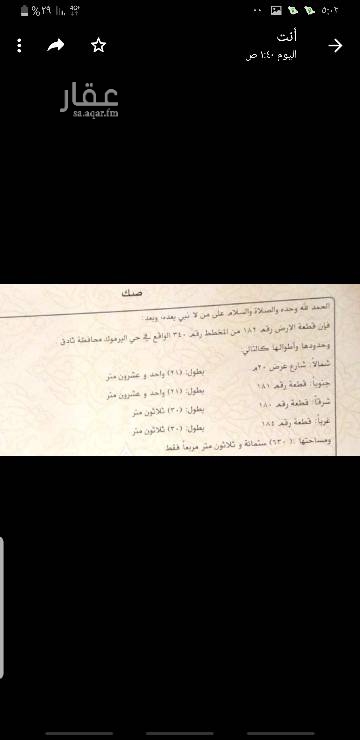 ٥:٠٢
%٢٩
4G+
أنت
اليوم ١:٤٠ ص
عقار
sa.aqar.fm
صك
الحمد لله وحده والصلاة والسلام على من لا نبي بعده، وبعد:
فإن قطعة الارض رقم ١٨٢ من المخطط رقم ٣٤٠ الواقع في حي اليرموك محافظة ثادق
وحدودها وأطوالها كالتالي:
شمالاً: شارع عرض ٢٠م بطول: (٢١) واحد و عشرون متر
جنوباً: قطعة رقم ١٨١ بطول: (٢١) واحد و عشرون متر
شرقاً: قطعة رقم ١٨٠ بطول: (٣٠) ثلاثون متر
غرباً: قطعة رقم ١٨٤ بطول: (٣٠) ثلاثون متر
ومساحتها: (٦٣٠) ستمائة و ثلاثون متر مربعاً فقط